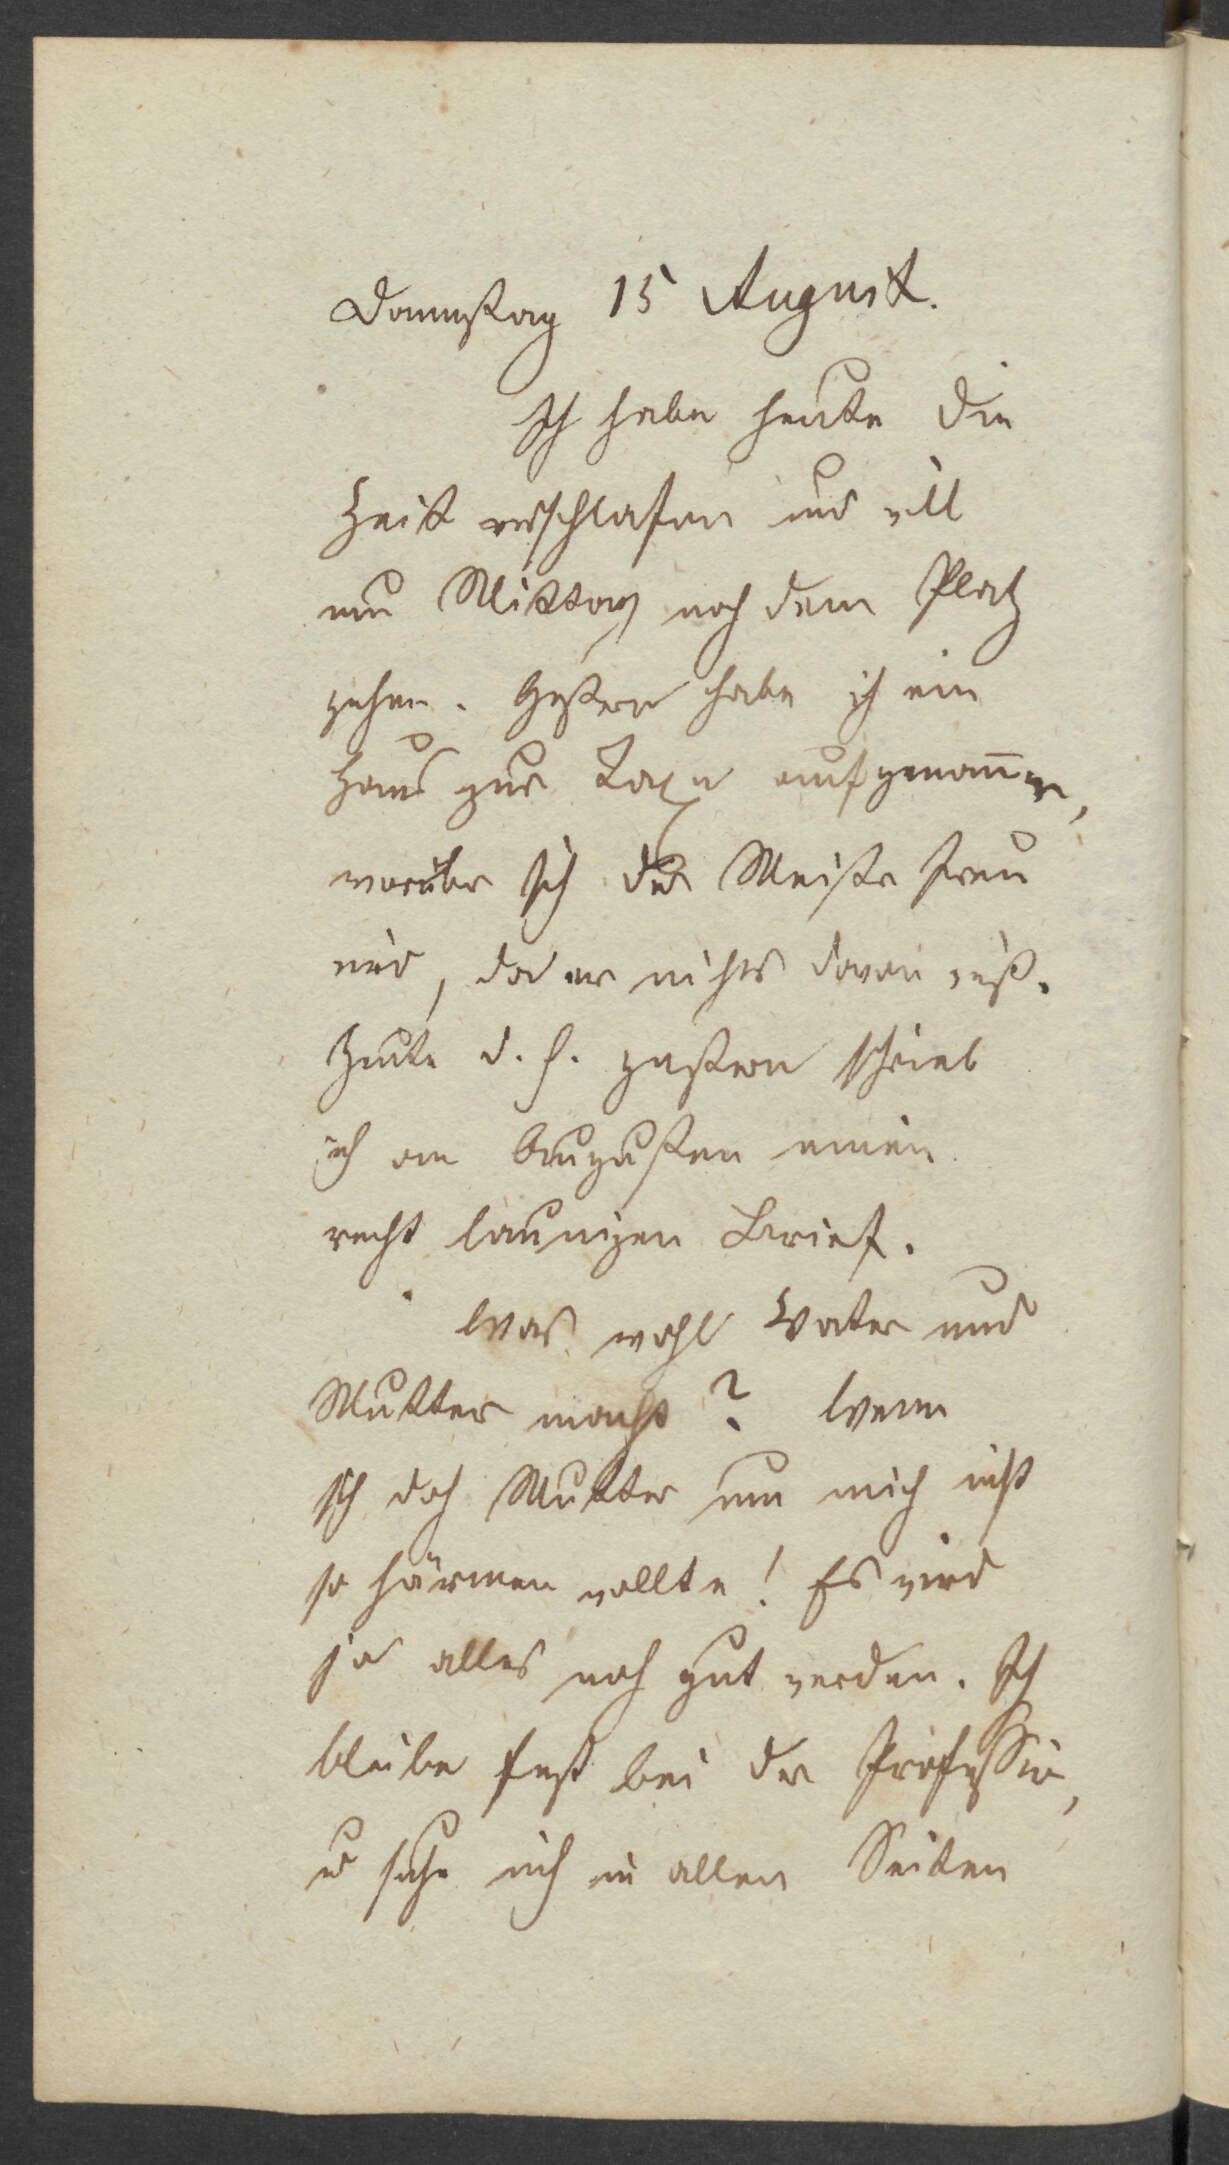 Donnerstag 15 August.
Ich habe heute die
Zeit verschlafen und will
um Mittag nach dem Platz
gehen. Gestern habe ich ein
Haus zur Taxe aufgenom̄en,
worüber sich der Meister freun
wird, da er nichts davon weiß.
Heute d. h. gestern schrieb
ich an Augusten einen
recht launigen Brief.
Was wohl Vater und
Mutter macht? Wenn
sich doch Mutter um mich nicht
so härmen wollte! Es wird
ja alles noch gut werden. Ich
bleibe fest bei der Profession,
u suche mich in allen Seiten